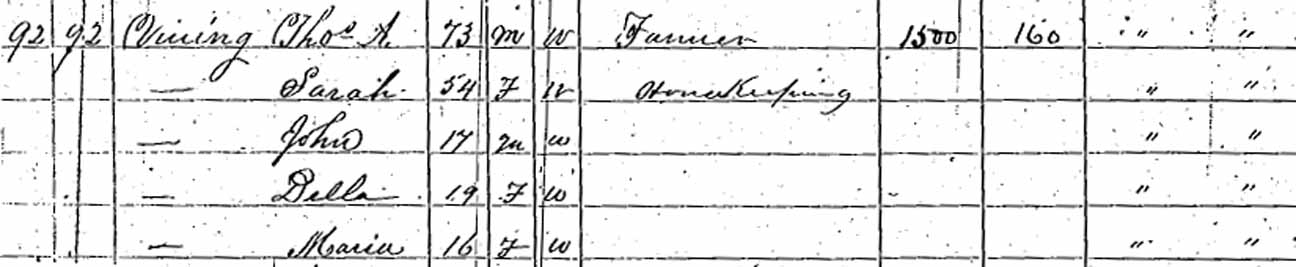 92 92 Vining Thos A. 73 M W Farmer 1500 160 " "
— Sarah 54 F W Housekeeping " "
— John 17 M W " "
— Della 19 F W " "
— Maria 16 F W " "